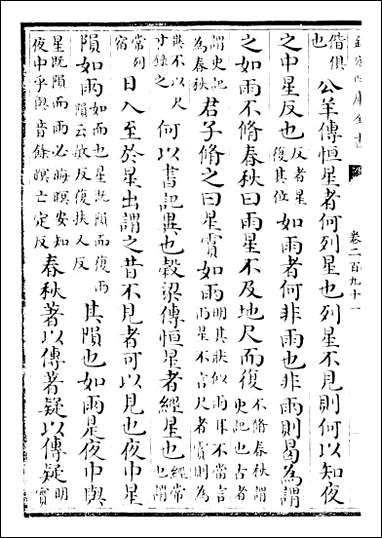 欽定四庫全書
卷二百九十一
偕俱
也
公羊傳恒星者何列星也列星不見則何以知夜
之中星反也
反者星
復其位
如雨者何非雨也非雨則曷為謂
之如雨不脩春秋曰雨星不及地尺而復
不脩春秋謂
史記也古者
謂史記
為春秋
君子脩之曰星霣如雨
明其狀似雨耳不當言
雨星不言尺者霣則為
異不以尺
寸錄之
何以書記異也穀梁傳恒星者經星也
經常
也謂
常列
宿
日入至於星出謂之昔不見者可以見也夜中星
隕如雨
如而也星既隕而復雨
隕云敏反復扶又反
其隕也如雨是夜中與
星既隕而雨必晦暝安知
夜中乎與音餘暝亡定反
春秋著以傳著疑以傳疑
明
實